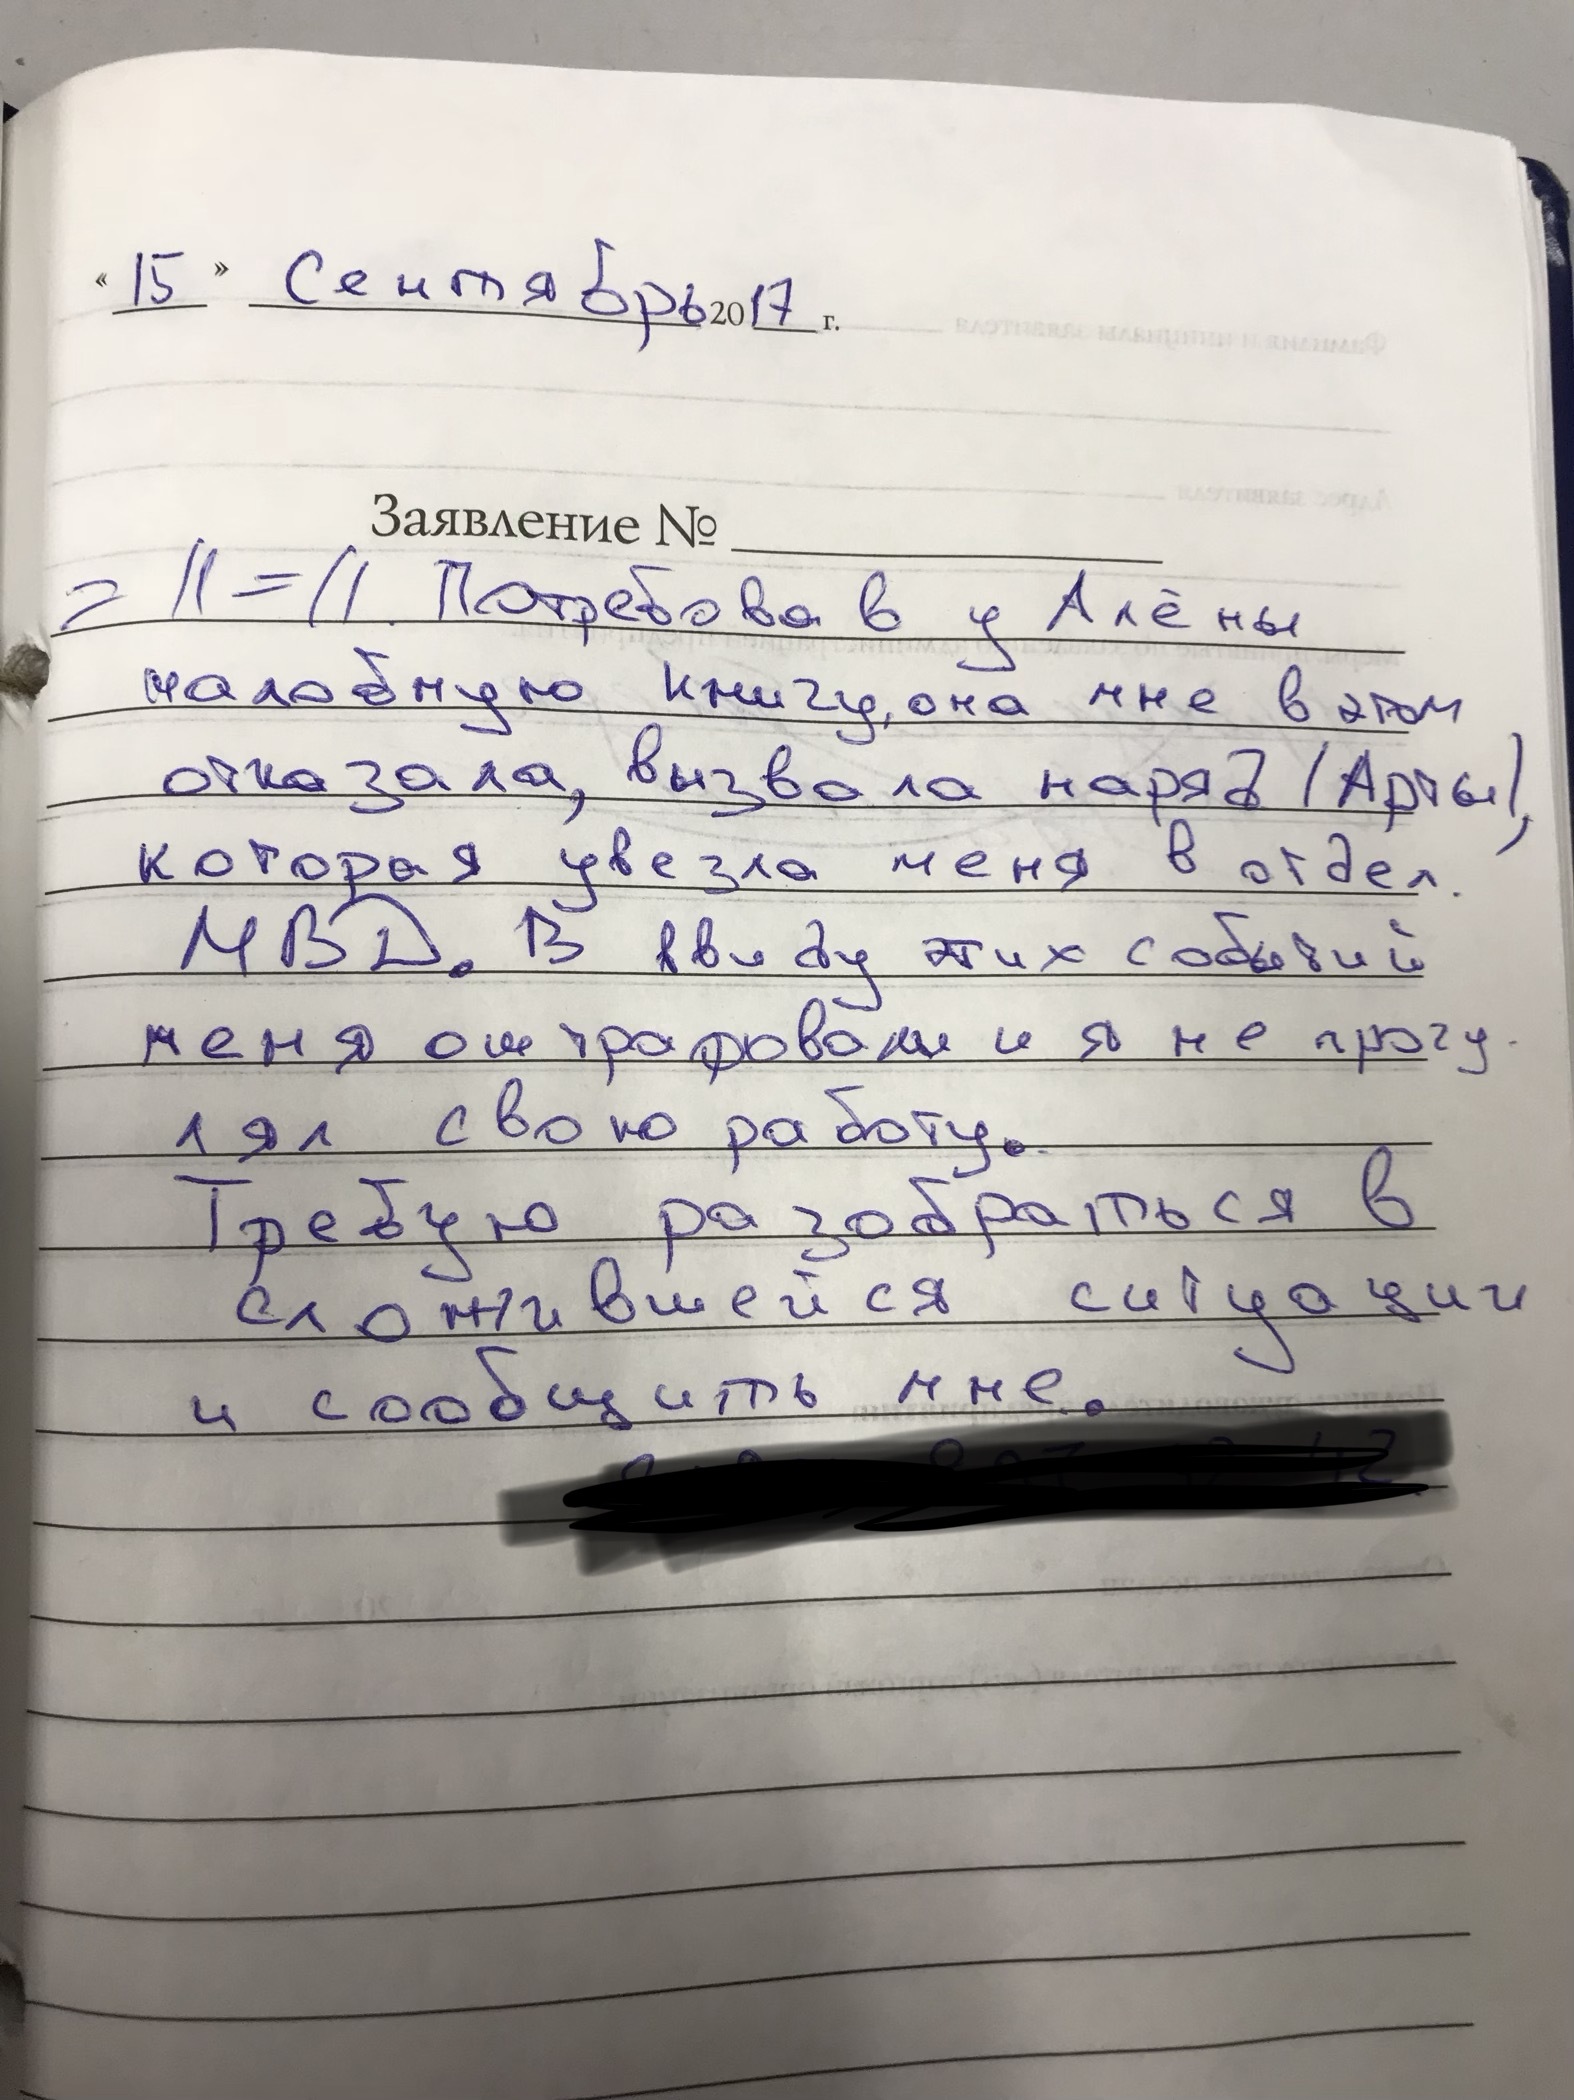 « 15 » Сентябрь 2017 г.
Заявление №
= // = //. Потребова в у Алёны
жалобную книгу, она мне в этом
отказала, вызвала наряд (Арты),
которая увезла меня в отдел.
МВД. В ввиду этих событий
меня оштрафовали и я не прогу-
лял свою работу.
Требую разобраться в
сложившейся ситуации
и сообщить мне.